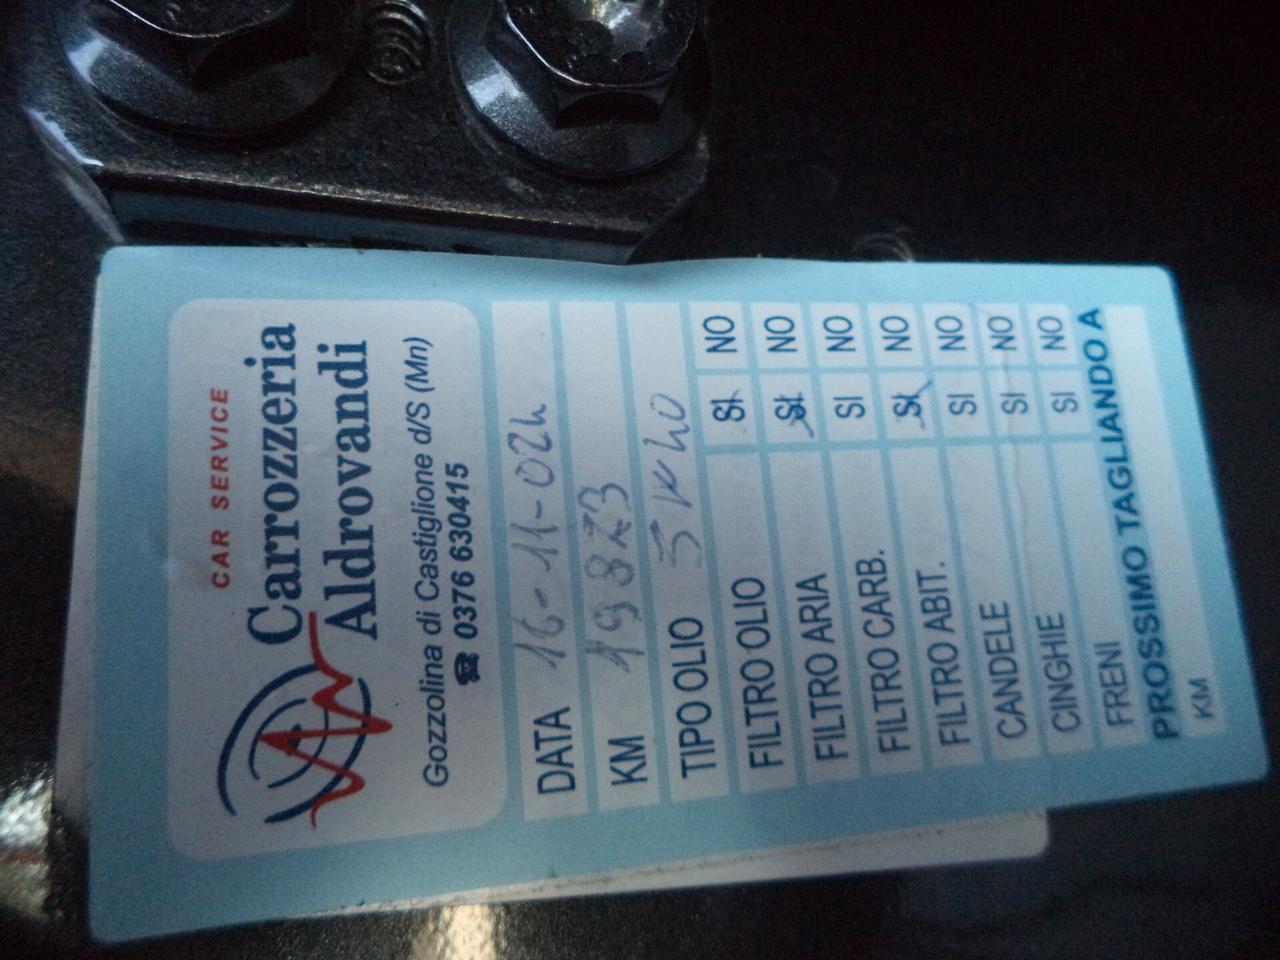 CAR SERVICE
Carrozzeria
Aldrovandi
Gozzolina di Castiglione d/S (Mn)
☎ 0376 630415
DATA 16-11-024
KM 198273
TIPO OLIO 5W40
FILTRO OLIO SI NO
FILTRO ARIA SI NO
FILTRO CARB. SI NO
FILTRO ABIT. SI NO
CANDELE SI NO
CINGHIE SI NO
FRENI SI NO
PROSSIMO TAGLIANDO A
KM